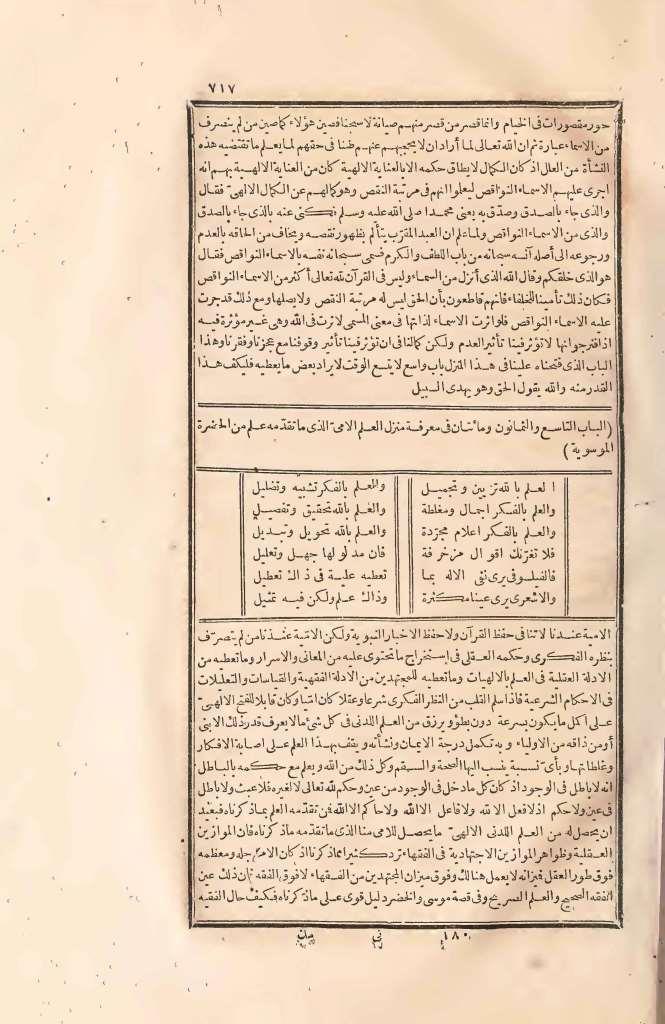 ٧١٧
حور مقصورات فى الخيام وانما قصر من قصر منهم صيانة لا سجنا فصين هؤلاء كما صين من لم يتصرف
من الاسماء عبارة ثم ان الله تعالى لما أراد ان لا يحجبهم عنهم ظنا فى حقهم لما يعلم ما تقتضيه هذه
النشأة من العلل اذ كان الكمال لا يطاق حكمه الا بالعناية الالهية كان من العناية الالهية بهم انه
اجرى عليهم الاسماء النواقص ليعلموا انهم فى مرتبة النقص وهو كمالهم عن الكمال الالهىّ فقال
والذى جاء بالصدق وصدّق به يعنى محمدا صلى الله عليه وسلم نكنى عنه بالذى جاء بالصدق
والذى من الاسماء النواقص ولما علم ان العبد المقرّب يتألم بظهور نقصه ويخاف من الحاقه بالعدم
ورجوعه الى أصله آنسه سبحانه من باب اللطف والكرم فسمى سبحانه نفسه بالاسماء النواقص فقال
هو الذى خلقكم وقال الله الذى أنزل من السماء وليس فى القرآن لله تعالى أكثر من الاسماء النواقص
فكان ذلك تأنيسا للخلفاء فانهم قاطعون بأن الحق ليس له مرتبة النقص ولا يصلها ومع ذلك قد جرت
عليه الاسماء النواقص فلو اثرت الاسماء لذاتها فى معنى المسمى لاثرت فى الله وهى غير مؤثرة فيه
اذا فترجوانها لا تؤثر فينا تأثير العدم ولكن كما لنا فى ان تؤثر فينا تأثير وقوفنا مع عجزنا وفقرنا وهذا
الباب الذى فتحناه علينا فى هذا المنزل باب واسع لا يتسع الوقت لايراد بعض ما يعطيه فليكف هذا
القدر منه والله يقول الحق وهو يهدى السبيل
(الباب التاسع والثمانون ومائتان فى معرفة منزل العلم الامىّ الذى ما تقدّمه علم من الحضرة
الموسوية)
العلم بالله تزيين وتجميل والعلم بالفكر تشبيه وتضليل
والعلم بالفكر اجمال ومغلطة والعلم بالله تحقيق وتفصيل
والعلم بالفكر اعلام مجرّدة والعلم بالله تحويل وتبديل
فلا تغرّنك اقوال مزخرفة فان مدلولها جهل وتعليل
فالفيلسوف يرى نفى الاله بما تعطيه علية فى ذاك تعطيل
والاشعرى يرى عينا مكثرة وذاك علم ولكن فيه تمثيل
الامية عندنا لا تنافى حفظ القرآن ولا حفظ الاخبار النبوية ولكن الامّية عندنا من لم يتصرّف
بنظره الفكرى وحكمه العقلى فى استخراج ما تحتوى عليه من المعانى والاسرار وما تعطيه من
الادلة العقلية فى العلم بالالهيات وما تعطيه للمجتهدين من الادلة الفقهية والقياسات والتعليلات
فى الاحكام الشرعية فاذا سلم القلب من النظر الفكرى شرعا وعقلا كان امّيا وكان قابلا للفتح الالهىّ
على اكمل ما يكون بسرعة دون بطؤ ويرزق من العلم اللدنى فى كل شئ ما لا يعرف قدر ذلك الا نبى
أو من ذاقه من الاولياء وبه تكمل درجة الايمان ونشأته ويقف بهذا العلم على اصابة الافكار
وغلطاتها وبأىّ نسبة ينسب اليها الصحة والسقم وكل ذلك من الله ويعلم مع حكمه بالباطل
انه لا باطل فى الوجود اذ كان كل ما دخل فى الوجود من عين وحكم لله تعالى لا لغيره فلا عبث ولا باطل
فى عين ولا حكم اذ لا فعل الا لله ولا فاعل الا الله ولا حاكم الا الله فمن تقدّمه العلم بما ذكرناه فبعيد
ان يحصل له من العلم اللدنى الالهىّ ما يحصل للامى منا الذى ما تقدّمه ما ذكرناه فان الموازين
العقلية وظواهر الموازين الاجتهادية فى الفقهاء تردّ كثيرا مما ذكرنا اذ كان الامر جله ومعظمه
فوق طور العقل فميزانه لا يعمل هنالك وفوق ميزان المجتهدين من الفقهاء لا فوق الفقه فان ذلك عين
الفقه الصحيح والعلم الصريح وفى قصة موسى والخضر دليل قوى على ما ذكرناه فكيف حال الفقيه
١٨٠ نى